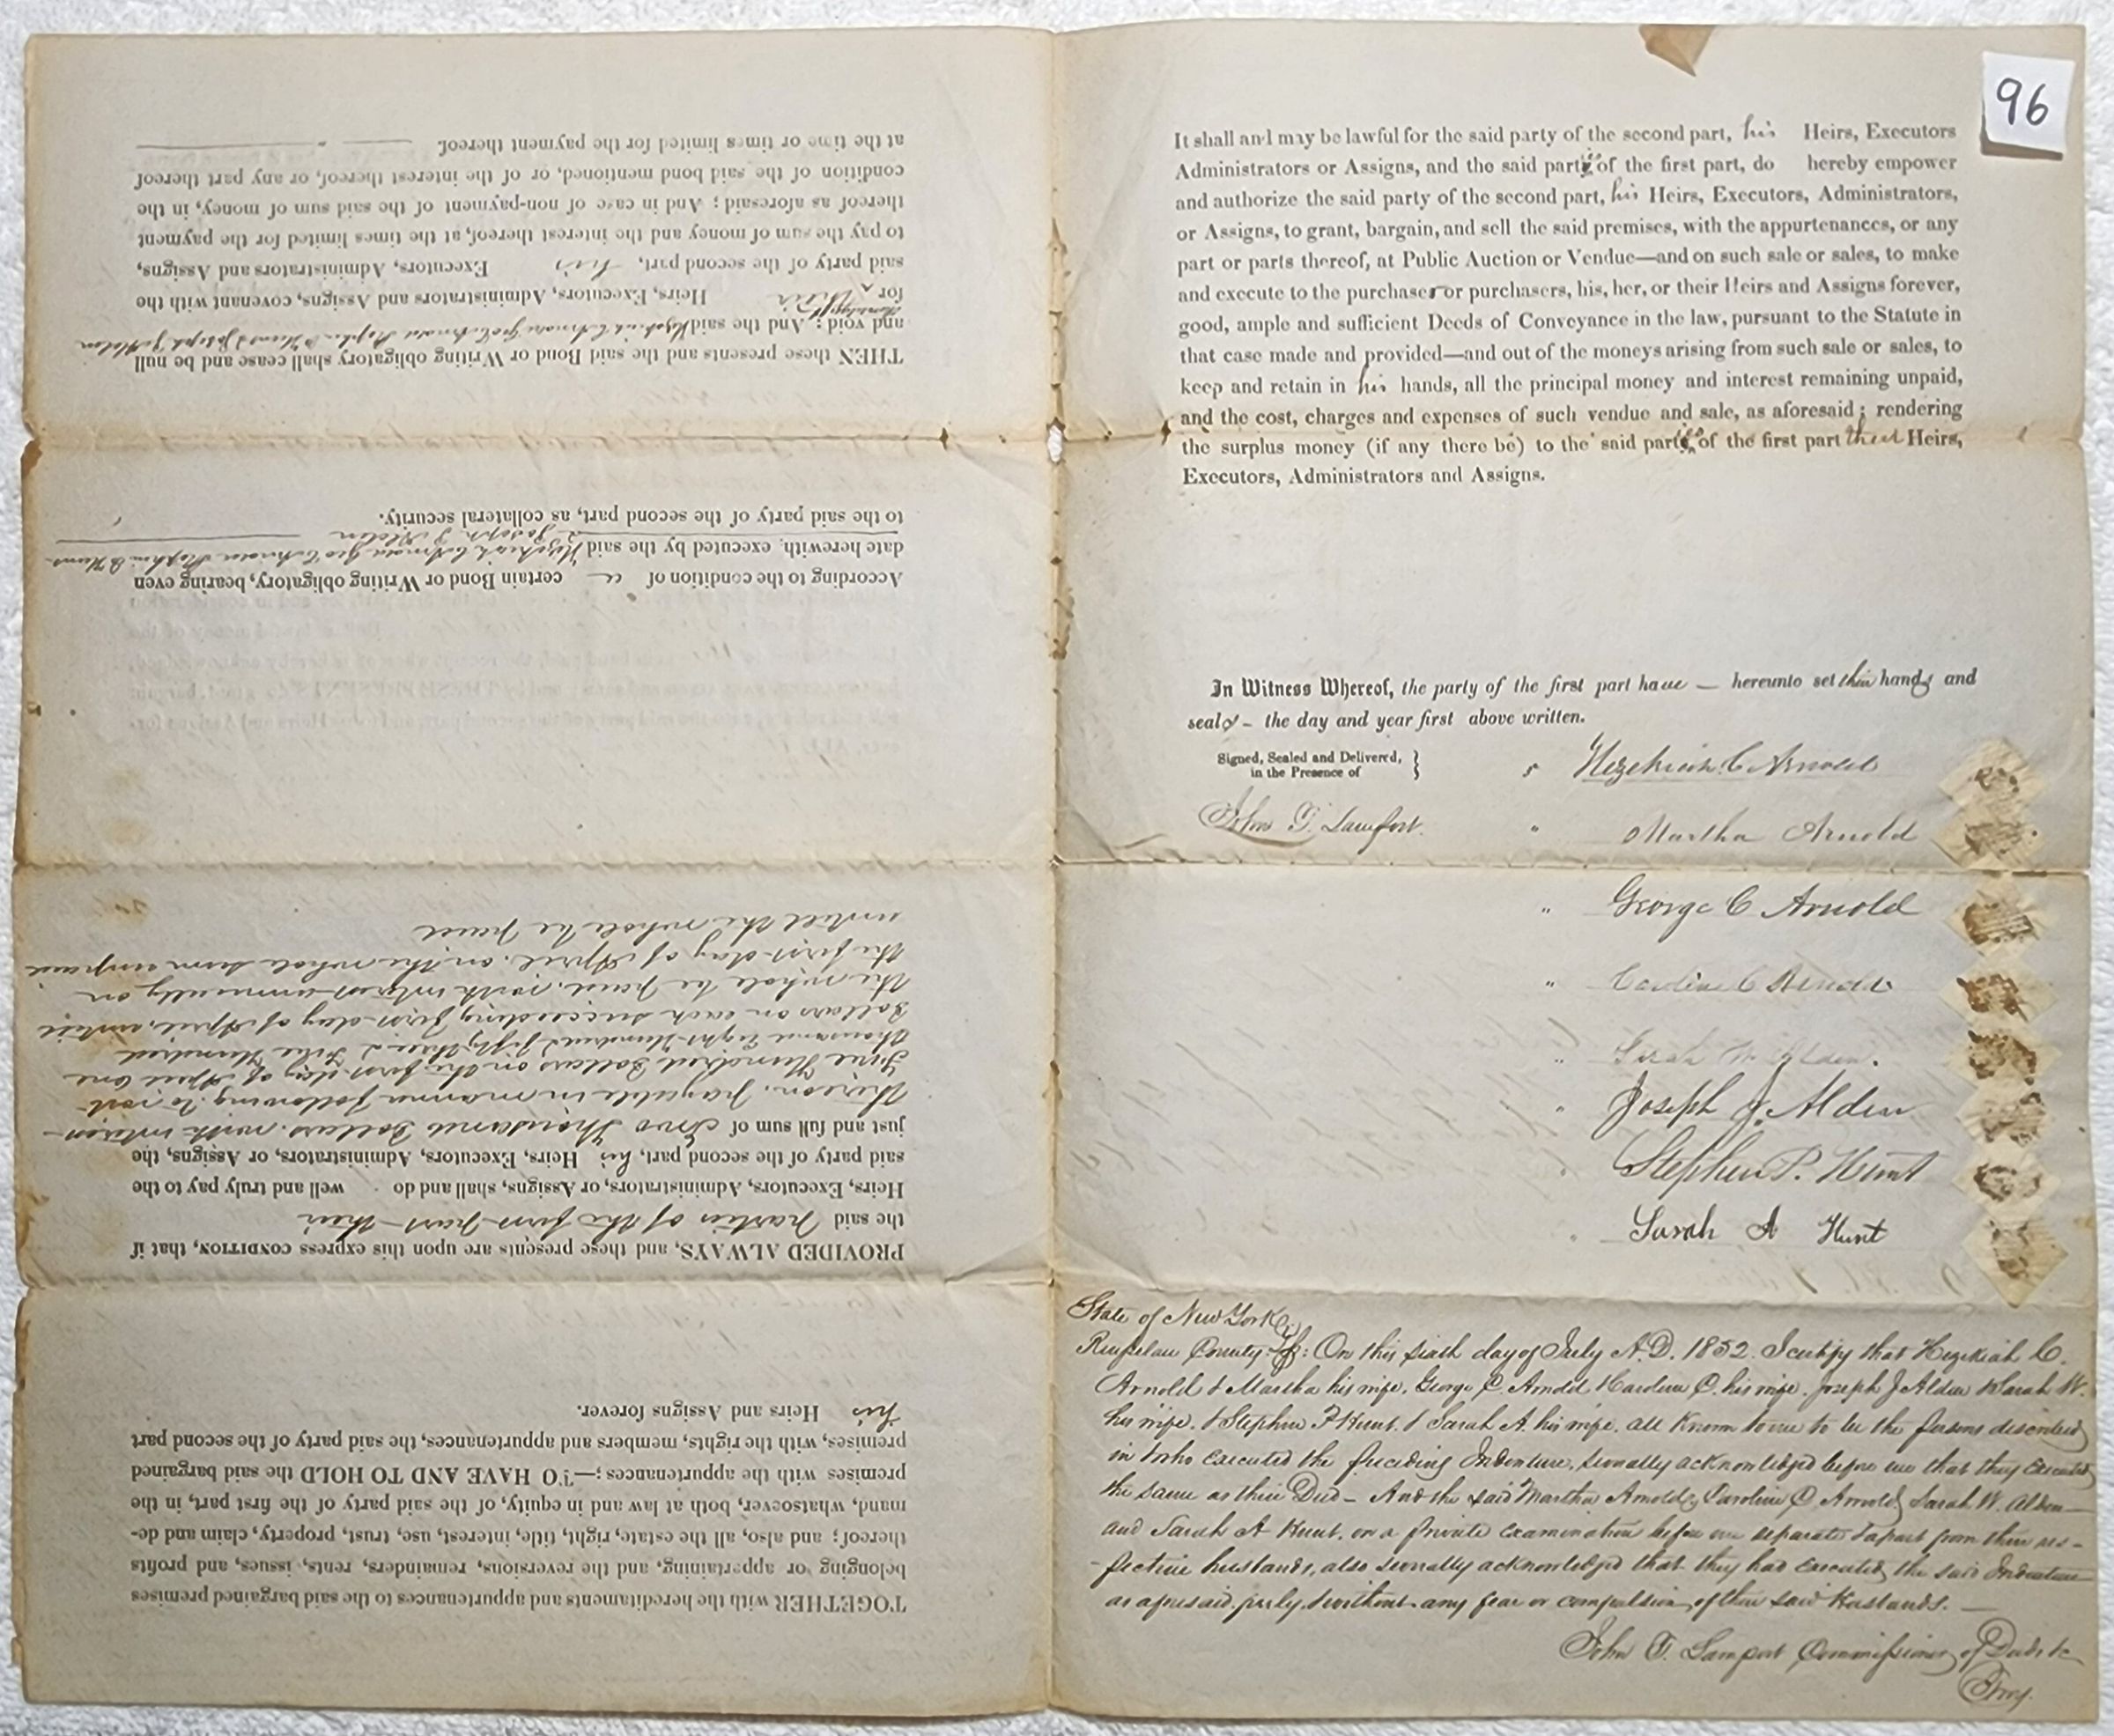 TOGETHER with the hereditaments and appurtenances to the said bargained premises
belonging or appertaining, and the reversions, remainders, rents, issues, and profits
thereof; and also, all the estate, right, title, interest, use, trust, property, claim and de-
mand, whatsoever, both at law and in equity, of the said party of the first part, in the
premises with the appurtenances;—TO HAVE AND TO HOLD the said bargained
premises, with the rights, members and appurtenances, the said party of the second part
his Heirs and Assigns forever.
PROVIDED ALWAYS, and these presents are upon this express CONDITION, that if
the said parties of the first part their
Heirs, Executors, Administrators, or Assigns, shall and do well and truly pay to the
said party of the second part, his Heirs, Executors, Administrators, or Assigns, the
just and full sum of Two Thousand Dollars, with interest
thereon, payable in manner following, to wit
Five Hundred Dollars on the first day of April One
thousand Eight Hundred fifty three & Five Hundred
Dollars on each succeeding first day of April, untill
the whole be paid, with interest annually on
the first day of April, on the whole sum unpaid
untill the whole be paid
According to the condition of a certain Bond or Writing obligatory, bearing even
date herewith, executed by the said Hezekiah C Arnold Geo C Arnold Stephen P Hunt
Joseph J Alden
to the said party of the second part, as collateral security.
THEN these presents and the said Bond or Writing obligatory shall cease and be null
and void: And the said Hezekiah C Arnold Geo C Arnold Stephen P Hunt & Joseph J Alden
for themselves their Heirs, Executors, Administrators and Assigns, covenant with the
said party of the second part, his Executors, Administrators and Assigns,
to pay the sum of money and the interest thereof, at the times limited for the payment
thereof as aforesaid; And in case of non-payment of the said sum of money, in the
condition of the said bond mentioned, or of the interest thereof, or any part thereof
at the time or times limited for the payment thereof.
96
It shall and may be lawful for the said party of the second part, his Heirs, Executors
Administrators or Assigns, and the said parties of the first part, do hereby empower
and authorize the said party of the second part, his Heirs, Executors, Administrators,
or Assigns, to grant, bargain, and sell the said premises, with the appurtenances, or any
part or parts thereof, at Public Auction or Vendue—and on such sale or sales, to make
and execute to the purchaser or purchasers, his, her, or their Heirs and Assigns forever,
good, ample and sufficient Deeds of Conveyance in the law, pursuant to the Statute in
that case made and provided—and out of the moneys arising from such sale or sales, to
keep and retain in his hands, all the principal money and interest remaining unpaid,
and the cost, charges and expenses of such vendue and sale, as aforesaid; rendering
the surplus money (if any there be) to the said parties of the first part their Heirs,
Executors, Administrators and Assigns.
In Witness Whereof, the party of the first part have — hereunto set their hands and
seals – the day and year first above written.
Signed, Sealed and Delivered,
in the Presence of
Hezekiah C Arnold
John T. Lamport
Martha Arnold
George C Arnold
Caroline C Arnold
Sarah W Alden.
Joseph J. Alden
Stephen P. Hunt
Sarah A Hunt
State of New York
Rensselaer County: ss: On this sixth day of July A.D. 1852. I certify that Hezekiah C.
Arnold & Martha his wife, George C. Arnold & Caroline C. his wife, Joseph J Alden & Sarah W.
his wife, & Stephen P Hunt, & Sarah A. his wife, all known to me to be the persons described
in & who executed the preceding Indenture, severally acknowledged before me that they executed
the same as their Deed – And the said Martha Arnold, Caroline C Arnold, Sarah W. Alden
and Sarah A Hunt, on a private examination before me separate & apart from their res-
-pective husbands, also severally acknowledged that they had executed the said Indenture
as aforesaid, freely & without any fear or compulsion of their said Husbands. —
John T. Lamport Commissioner of Deeds &c
Troy.